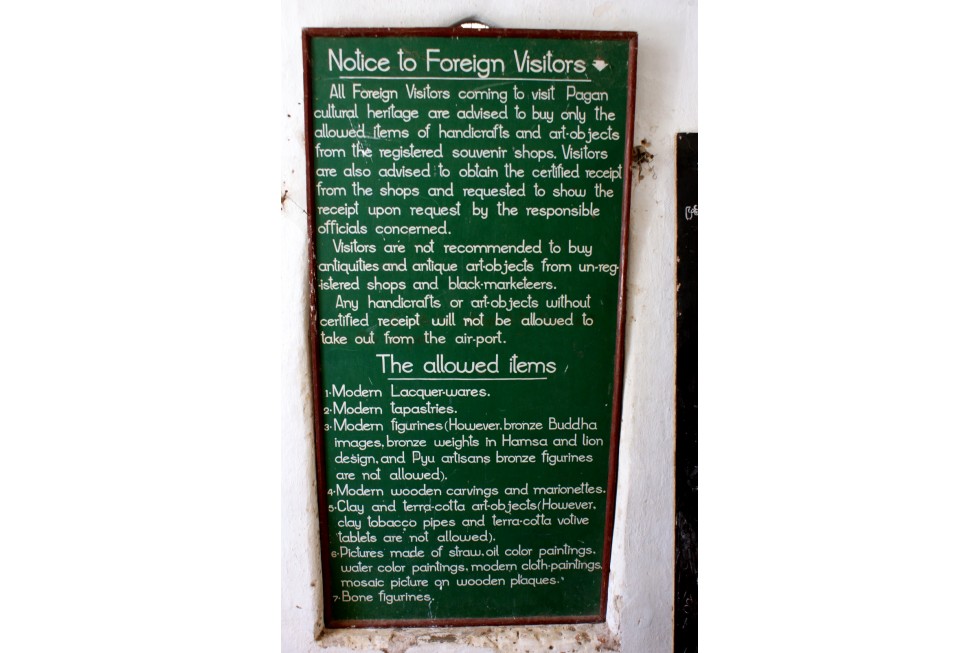 Notice to Foreign Visitors
All Foreign Visitors coming to visit Pagan
cultural heritage are advised to buy only the
allowed items of handicrafts and art-objects
from the registered souvenir shops. Visitors
are also advised to obtain the certified receipt
from the shops and requested to show the
receipt upon request by the responsible
officials concerned.
Visitors are not recommended to buy
antiquities and antique art-objects from un-reg-
-istered shops and black-marketeers.
Any handicrafts or art-objects without
certified receipt will not be allowed to
take out from the air-port.
The allowed items
1.Modern Lacquer-wares.
2.Modern tapastries.
3.Modern figurines(However, bronze Buddha
images, bronze weights in Hamsa and lion
design, and Pyu artisans bronze figurines
are not allowed).
4.Modern wooden carvings and marionettes.
5.Clay and terra-cotta art-objects(However,
clay tobacco pipes and terra-cotta votive
tablets are not allowed).
6.Pictures made of straw, oil color paintings,
water color paintings, modern cloth-paintings,
mosaic picture on wooden plaques.
7.Bone figurines.